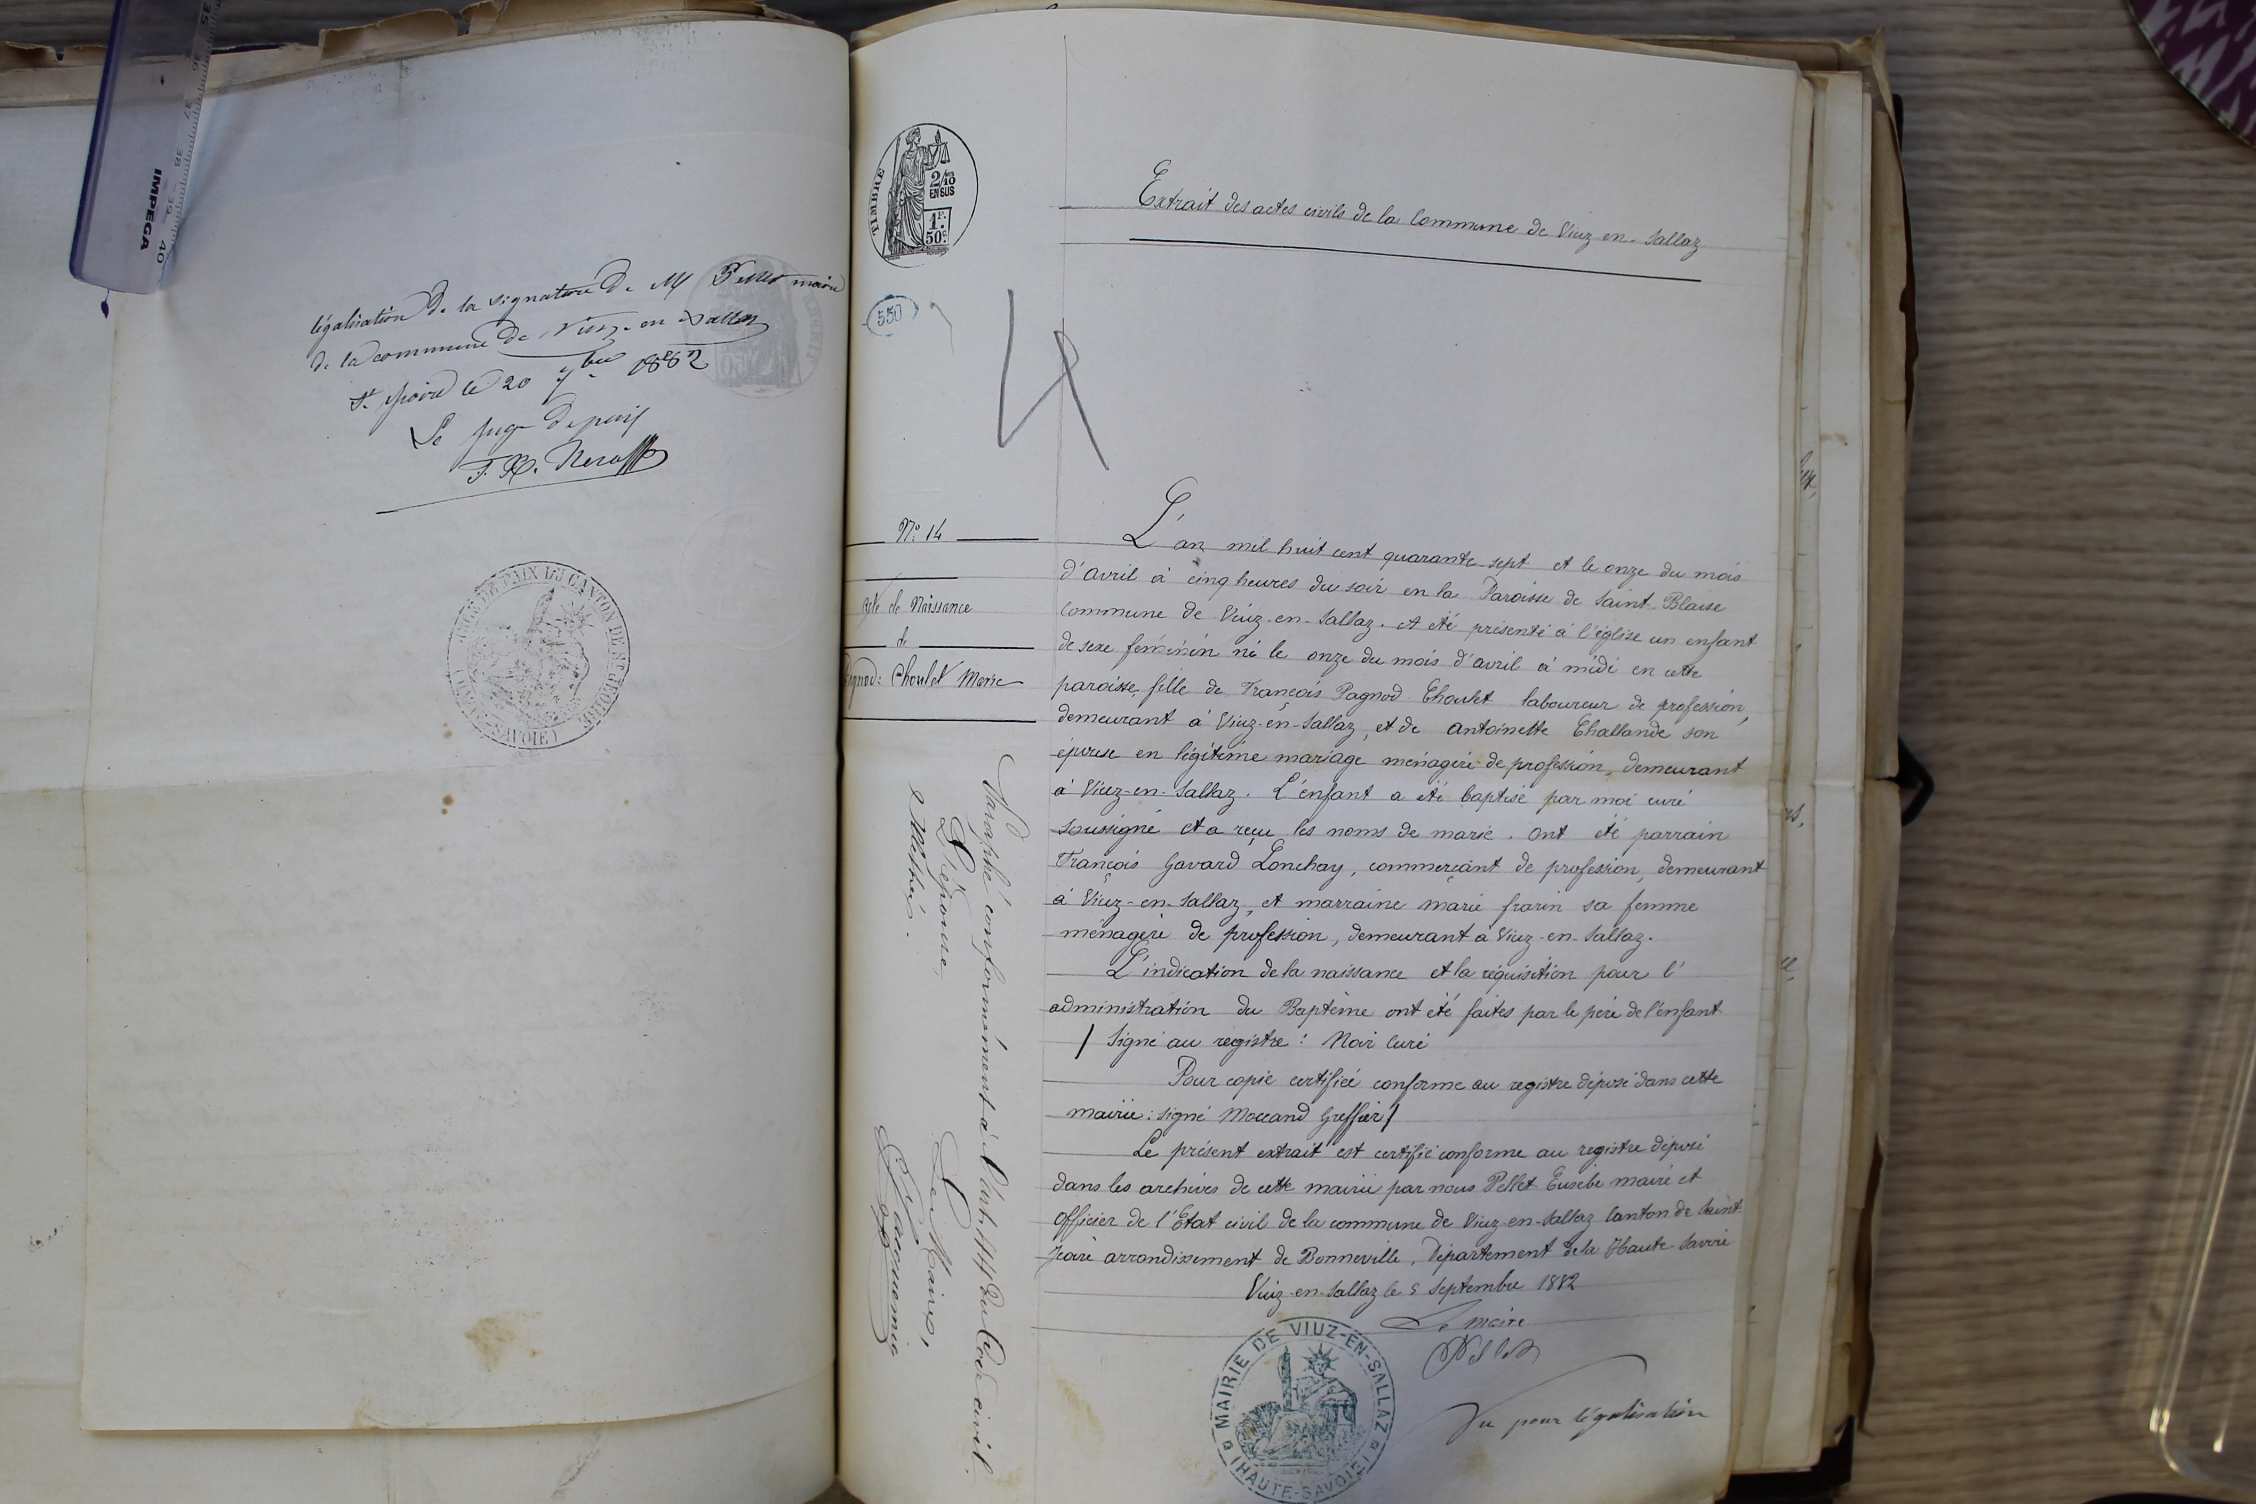 légalisation de la signature de Mr Pellet maire
de la commune de Viuz-en-Sallaz
St Jeoire le 20 7bre 1882
Le juge de paix
JUSTICE DE PAIX DU CANTON DE ST JEOIRE
(HAUTE-SAVOIE)
IMPEGA
TIMBRE
2/10
EN SUS
1F.
50c.
550
Extrait des actes civils de la Commune de Viuz-en-Sallaz
No 14
acte de Naissance
de
Pagnod-Choulet Marie
L'an mil huit cent quarante-sept et le onze du mois
d'avril à cinq heures du soir en la Paroisse de Saint-Blaise
commune de Viuz-en-Sallaz. A été présenté à l'église un enfant
de sexe féminin né le onze du mois d'avril à midi en cette
paroisse, fille de François Pagnod Choulet laboureur de profession,
demeurant à Viuz-en-Sallaz, et de Antoinette Challande son
épouse en légitime mariage ménagère de profession, demeurant
à Viuz-en-Sallaz. L'enfant a été baptisé par moi curé
soussigné et a reçu les noms de marie. Ont été parrain
François Gavard Lonchay, commerçant de profession, demeurant
à Viuz-en-Sallaz, et marraine marie frarin sa femme
ménagère de profession, demeurant à Viuz-en-Sallaz.
L'indication de la naissance et la réquisition pour l'
administration du Baptême ont été faites par le père de l'enfant
/ Signé au registre : Noir Curé
Pour copie certifiée conforme au registre déposé dans cette
mairie : signé Moccand Greffier /
Le présent extrait est certifié conforme au registre déposé
dans les archives de cette mairie par nous Pellet Eusèbe maire et
Officier de l'Etat civil de la commune de Viuz-en-Sallaz Canton de Saint
Jeoire arrondissement de Bonneville, Département de la Haute-Savoie
Viuz-en-Sallaz le 5 septembre 1882
Le maire
Pellet
Vu pour légalisation
MAIRIE DE VIUZ-EN-SALLAZ
(HAUTE-SAVOIE)
Paraphé conformément à l'art. 44 du Code civil.
L'épouse, Le Maire,